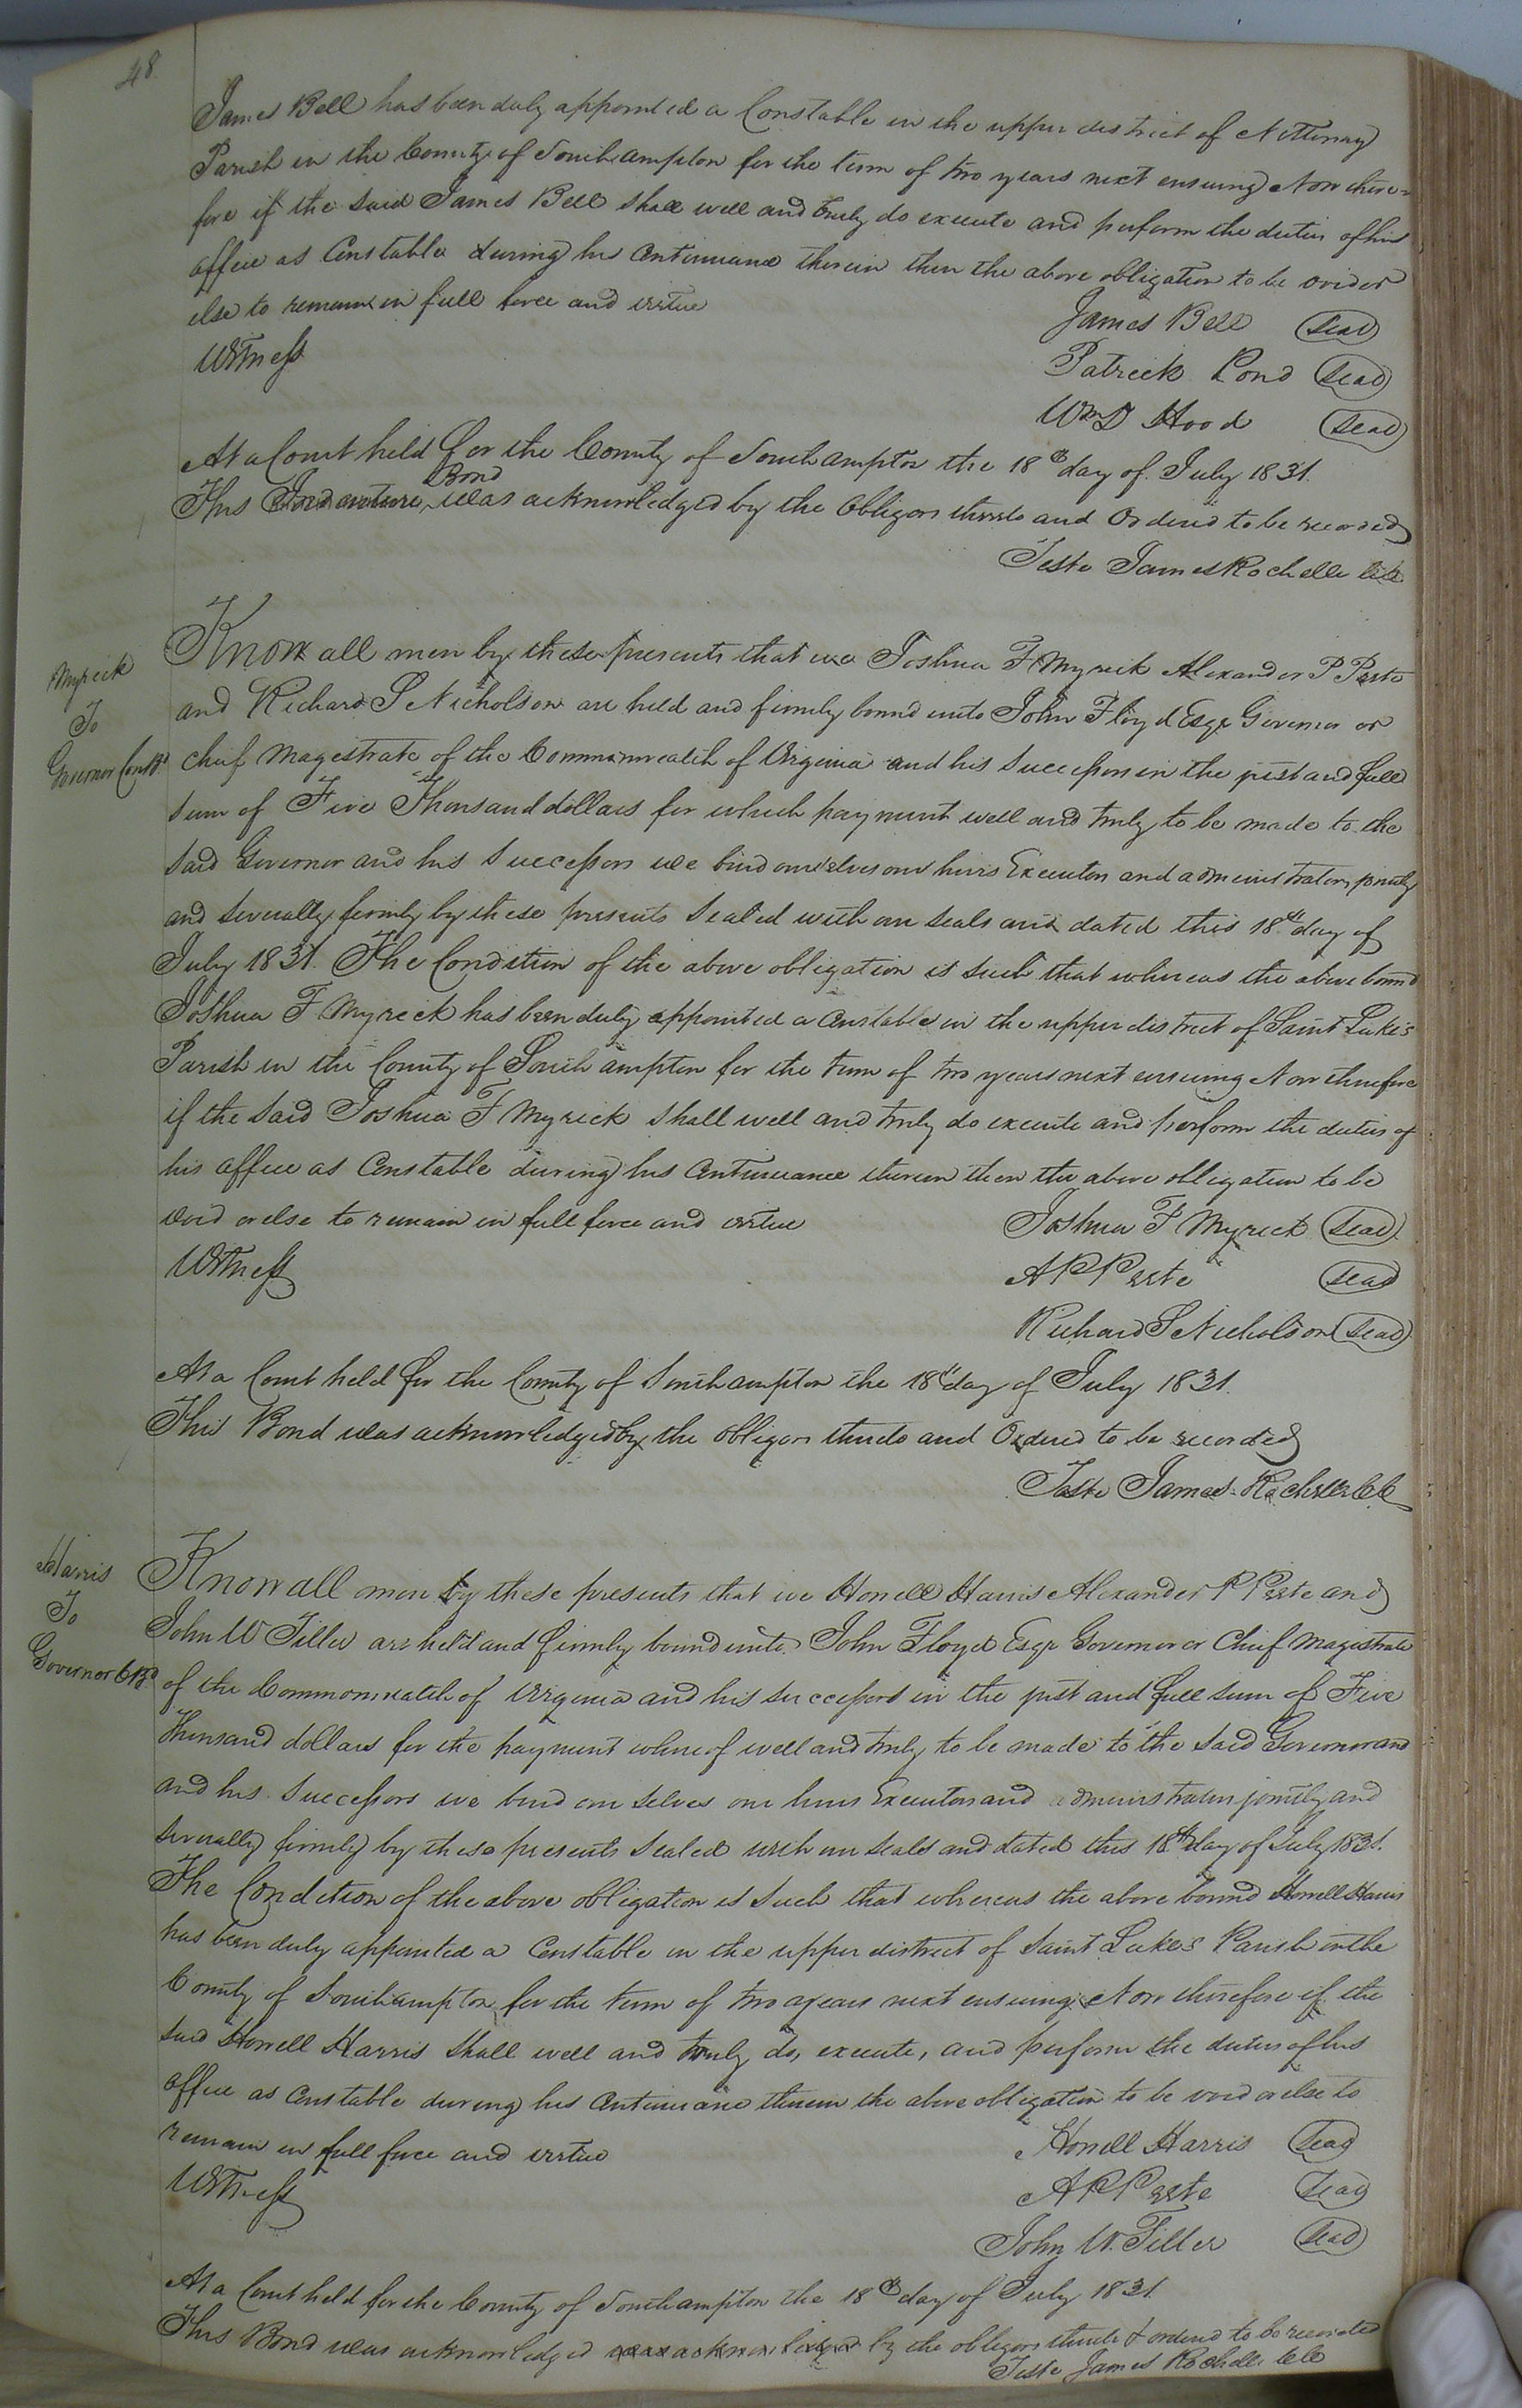 48
James Bell has been duly appointed a Constable in the upper district of Nottoway
Parish in the County of Southampton for the term of two years next ensuing Now there=
fore if the said James Bell shall well and truly do execute and perform the duties of his
office as Constable during his Continuance therein then the above obligation to be void or
else to remain in full force and virtue
James Bell Seal
Witness
Patrick Pond Seal
Wm D Hood Seal
At a Court held for the County of Southampton the 18th day of July 1831.
Bond
This Indenture was acknowledged by the Obligors thereto and Ordered to be recorded
Teste James Rochelle CC
Myrick
To
Governor Con Bd
Know all men by these presents that we Joshua F Myrick Alexander P Peete
and Richard S Nicholson are held and firmly bound unto John Floyd Esqr Governor or
chief Magestrate of the Commonwealth of Virginia and his Successors in the just and full
sum of Five Thousand dollars for which payment well and truly to be made to the
said Governor and his Successors we bind ourselves our heirs Executors and administrators jointly
and severally firmly by these presents Sealed with our seals and dated this 18th day of
July 1831. The Condition of the above obligation is such that whereas the above bound
Joshua F Myrick has been duly appointed a Constable in the upper district of Saint Luke's
Parish in the County of Southampton for the term of two years next ensuing Now therefore
if the said Joshua F Myrick shall well and truly do execute and perform the duties of
his office as Constable during his Continuance therein then the above obligation to be
void or else to remain in full force and virtue
Joshua F Myrick Seal
Witness
A P Peete Seal
Richard S Nicholson Seal
At a Court held for the County of Southampton the 18th day of July 1831.
This Bond was acknowledged by the obligors thereto and Ordered to be recorded
Teste James Rochelle CC
Harris
To
Governor C Bd
Know all men by these presents that we Howell Harris Alexander P Peete and
John W Tiller are held and firmly bound unto John Floyd Esqr Governor or Chief Magistrate
of the Commonwealth of Virginia and his successors in the just and full sum of Five
Thousand dollars for the payment whereof well and truly to be made to the said Governor and
and his Successors we bind our selves our heirs Executors and administrators jointly and
severally firmly by these presents Sealed with our seals and dated this 18th day of July 1831.
The Condition of the above obligation is such that whereas the above bound Howell Harris
has been duly appointed a Constable in the upper district of Saint Lukes Parish in the
County of Southampton for the term of two years next ensuing Now therefore if the
said Howell Harris shall well and truly do, execute, and perform the duties of his
office as Constable during his Continuance therein the above obligation to be void or else to
remain in full force and virtue
Howell Harris Seal
Witness
A P Peete Seal
John W. Tiller Seal
At a Court held for the County of Southampton the 18th day of July 1831.
This Bond was acknowledged was acknowledged by the obligors thereto & ordered to be recorded
Teste James Rochelle CC